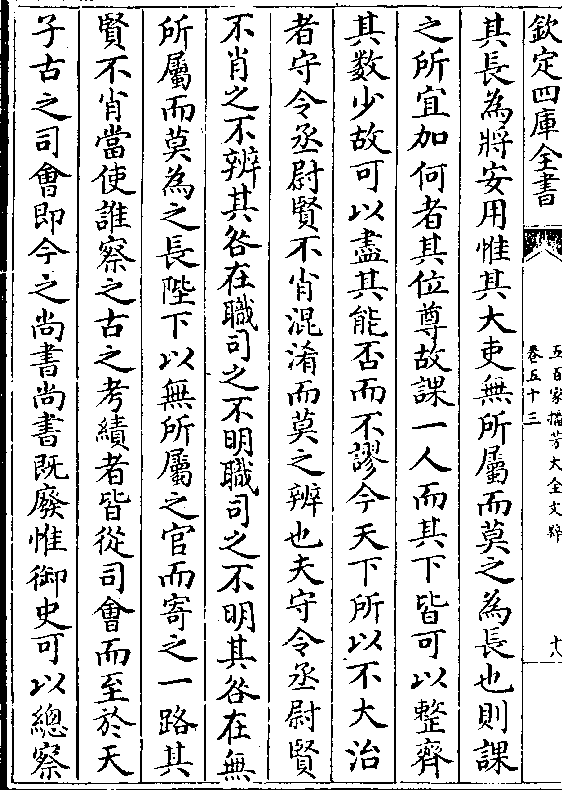 欽定四庫全書
五百家播芳大全文粹
卷五十三
十八
其長為將安用惟其大吏無所屬而莫之為長也則課
之所宜加何者其位尊故課一人而其下皆可以整齊
其數少故可以盡其能否而不謬今天下所以不大治
者守令丞尉賢不肖混淆而莫之辨也夫守令丞尉賢
不肖之不辨其咎在職司之不明職司之不明其咎在無
所屬而莫為之長陛下以無所屬之官而寄之一路其
賢不肖當使誰察之古之考績者皆從司會而至於天
子古之司會即今之尚書尚書既廢惟御史可以總察